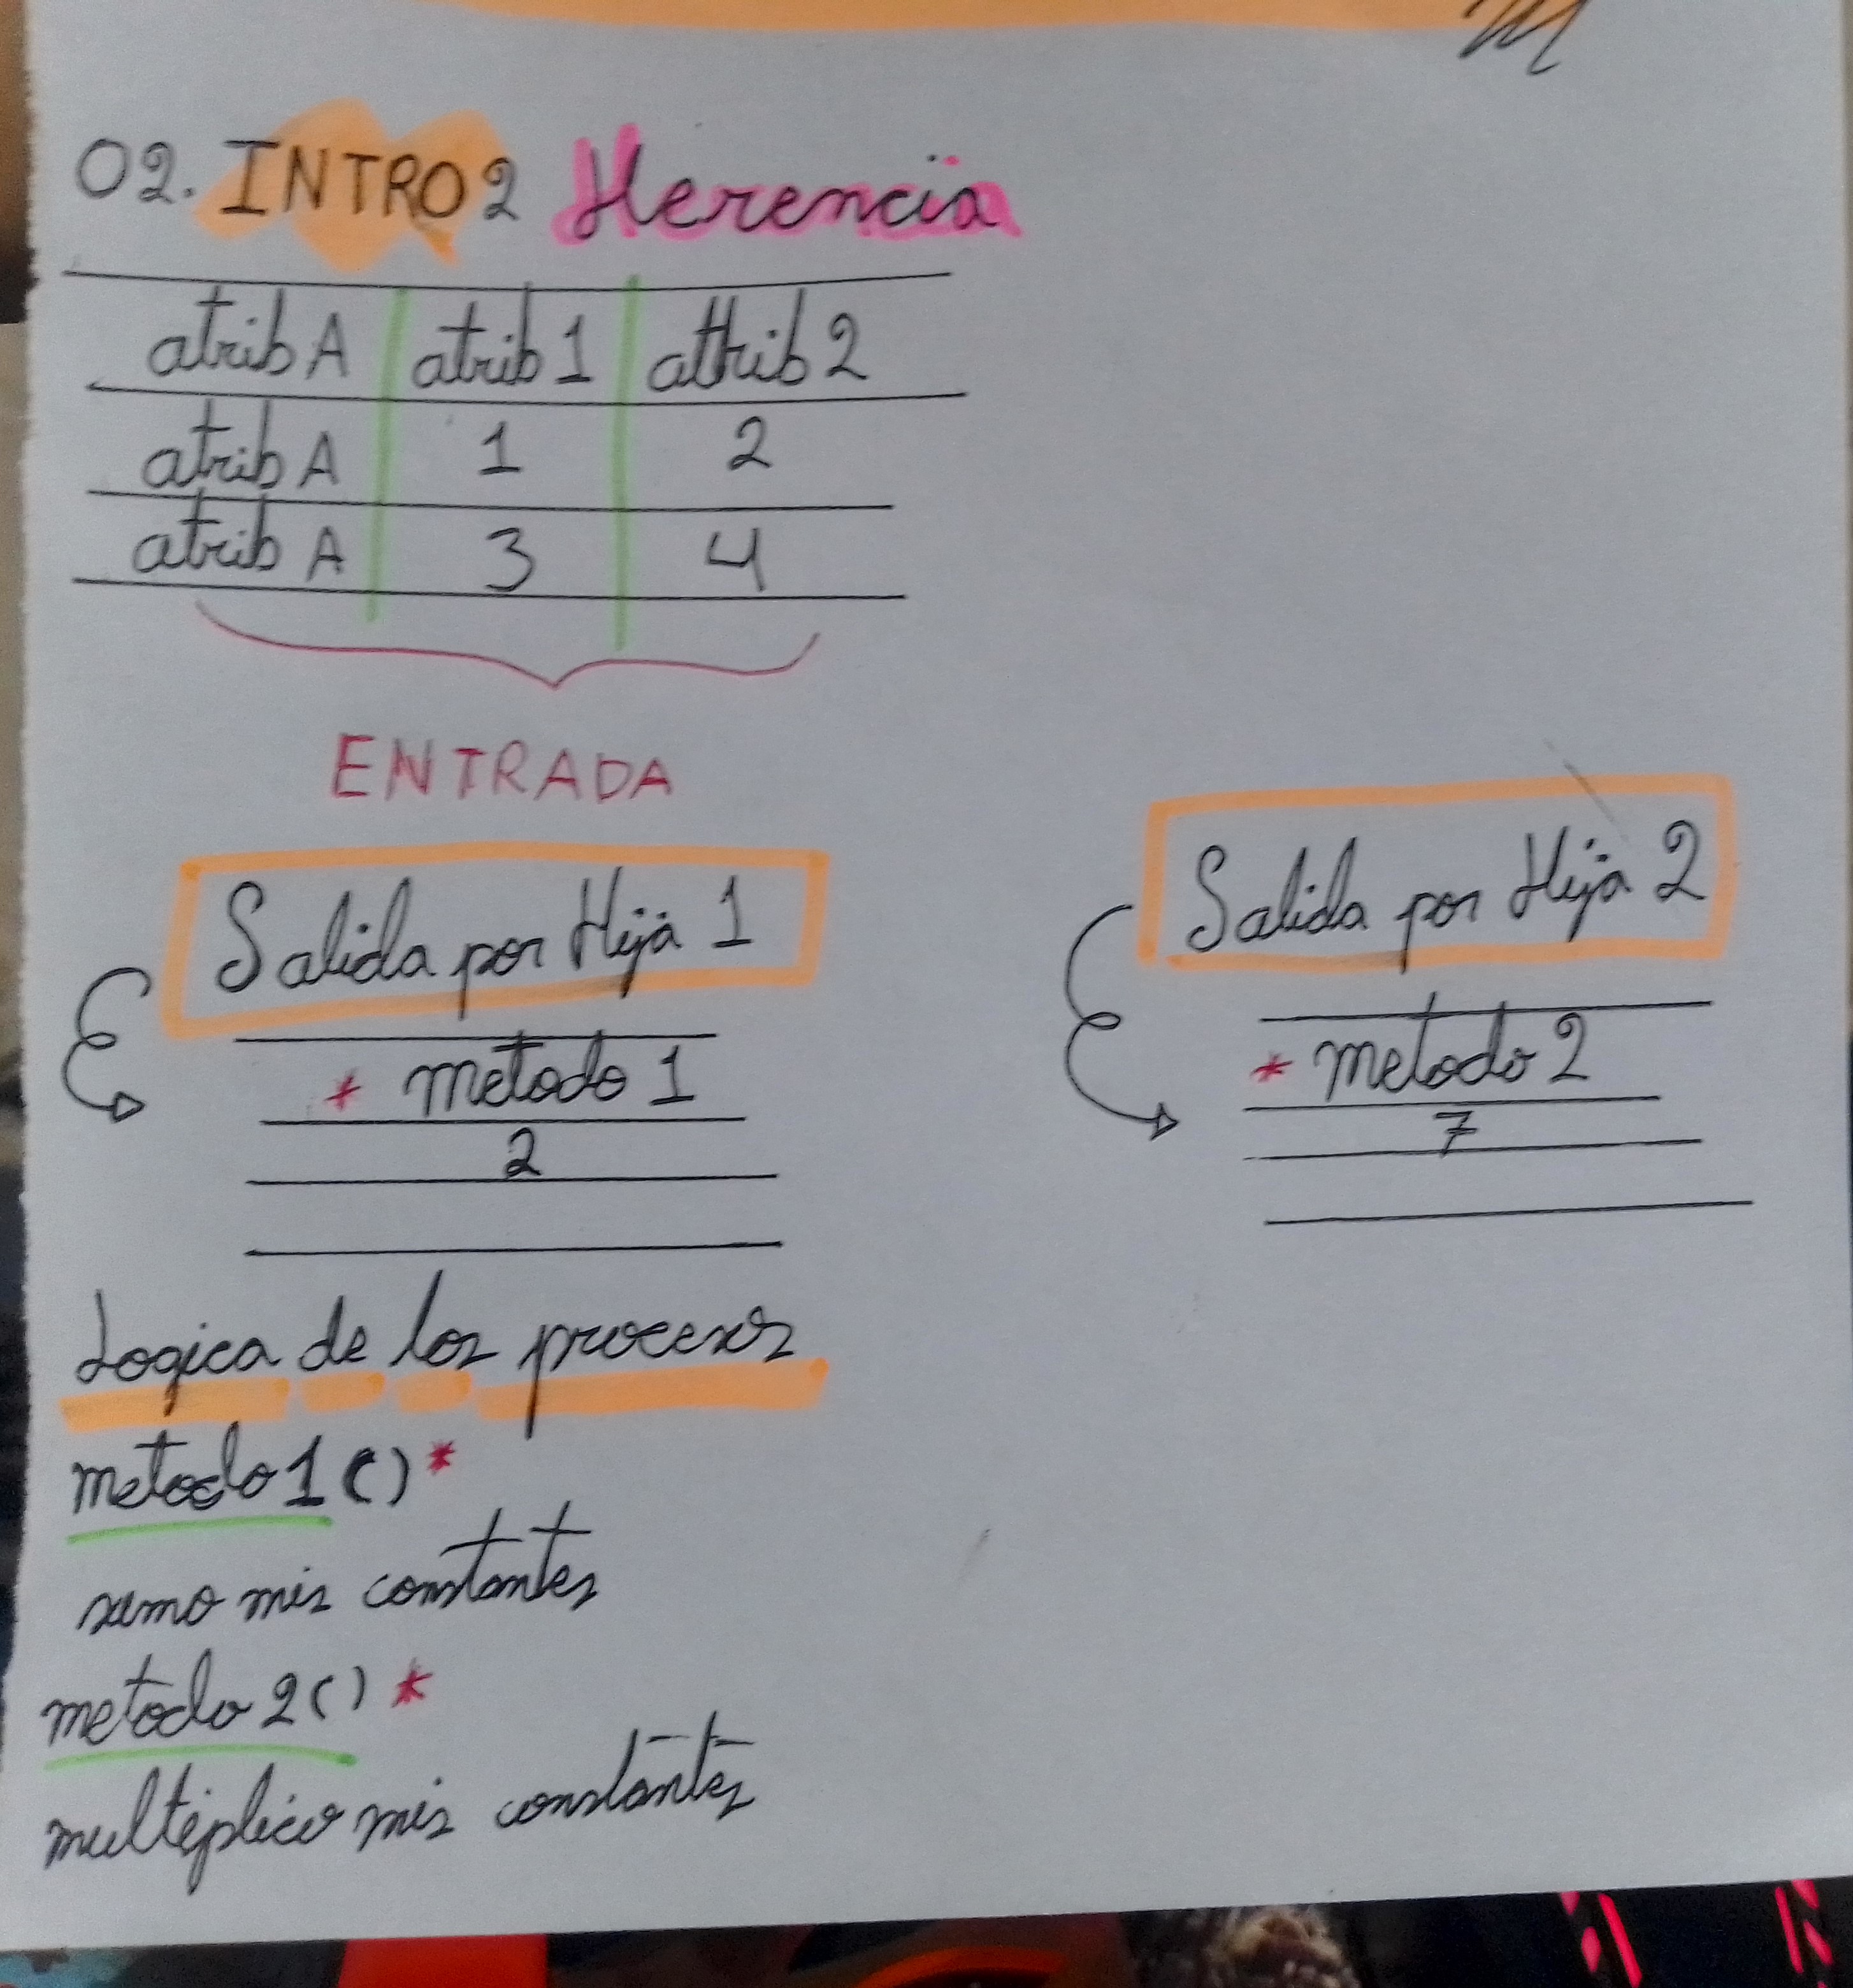 02. INTRO2 Herencia
atrib A atrib 1 attrib 2
atrib A 1 2
atrib A 3 4
ENTRADA
Salida por Hija 1
* metodo 1
2
Salida por Hija 2
* metodo 2
7
Logica de los procesos
metodo 1 () *
sumo mis constantes
metodo 2 () *
multiplico mis constantes